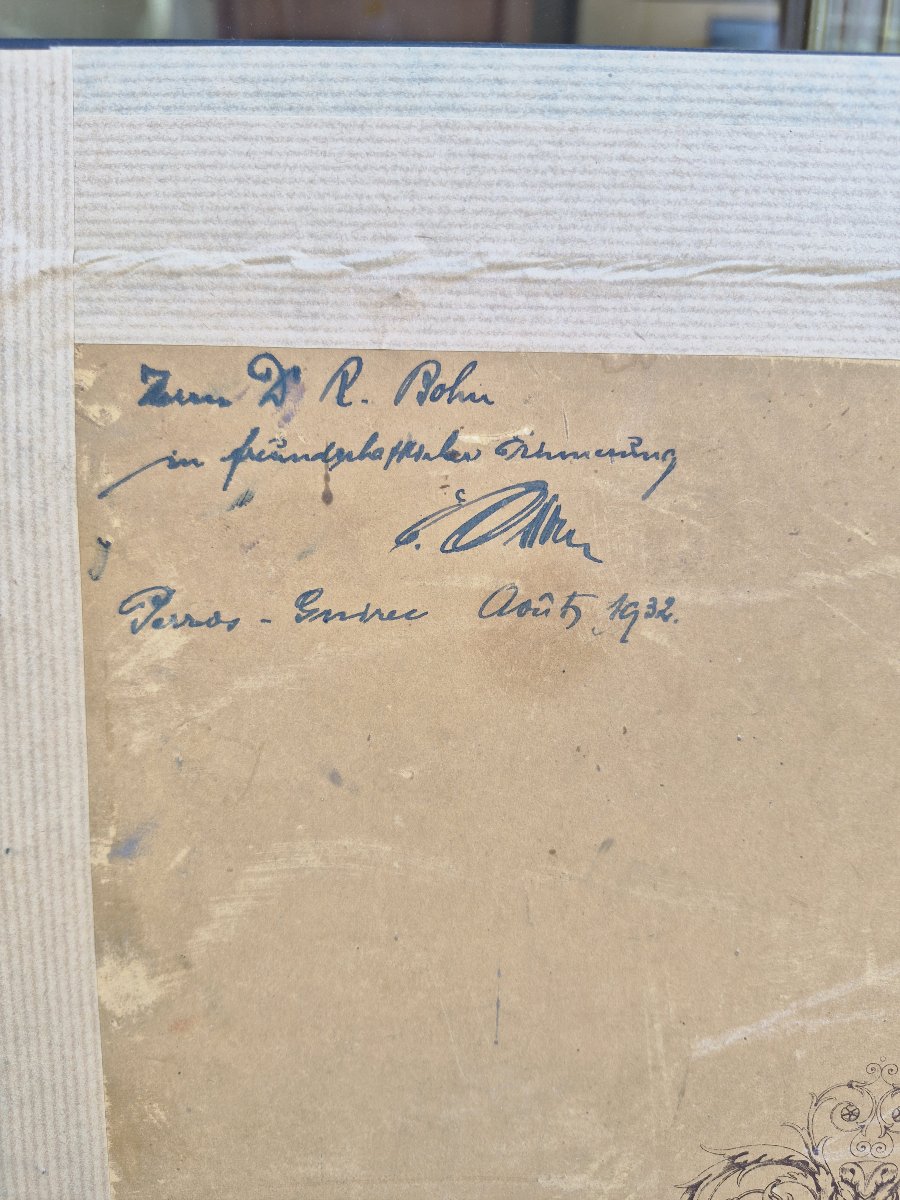 Herrn Dr R. Bohn
in freundschaftlicher Erinnerung
Perros-Guirec Août, 1932.